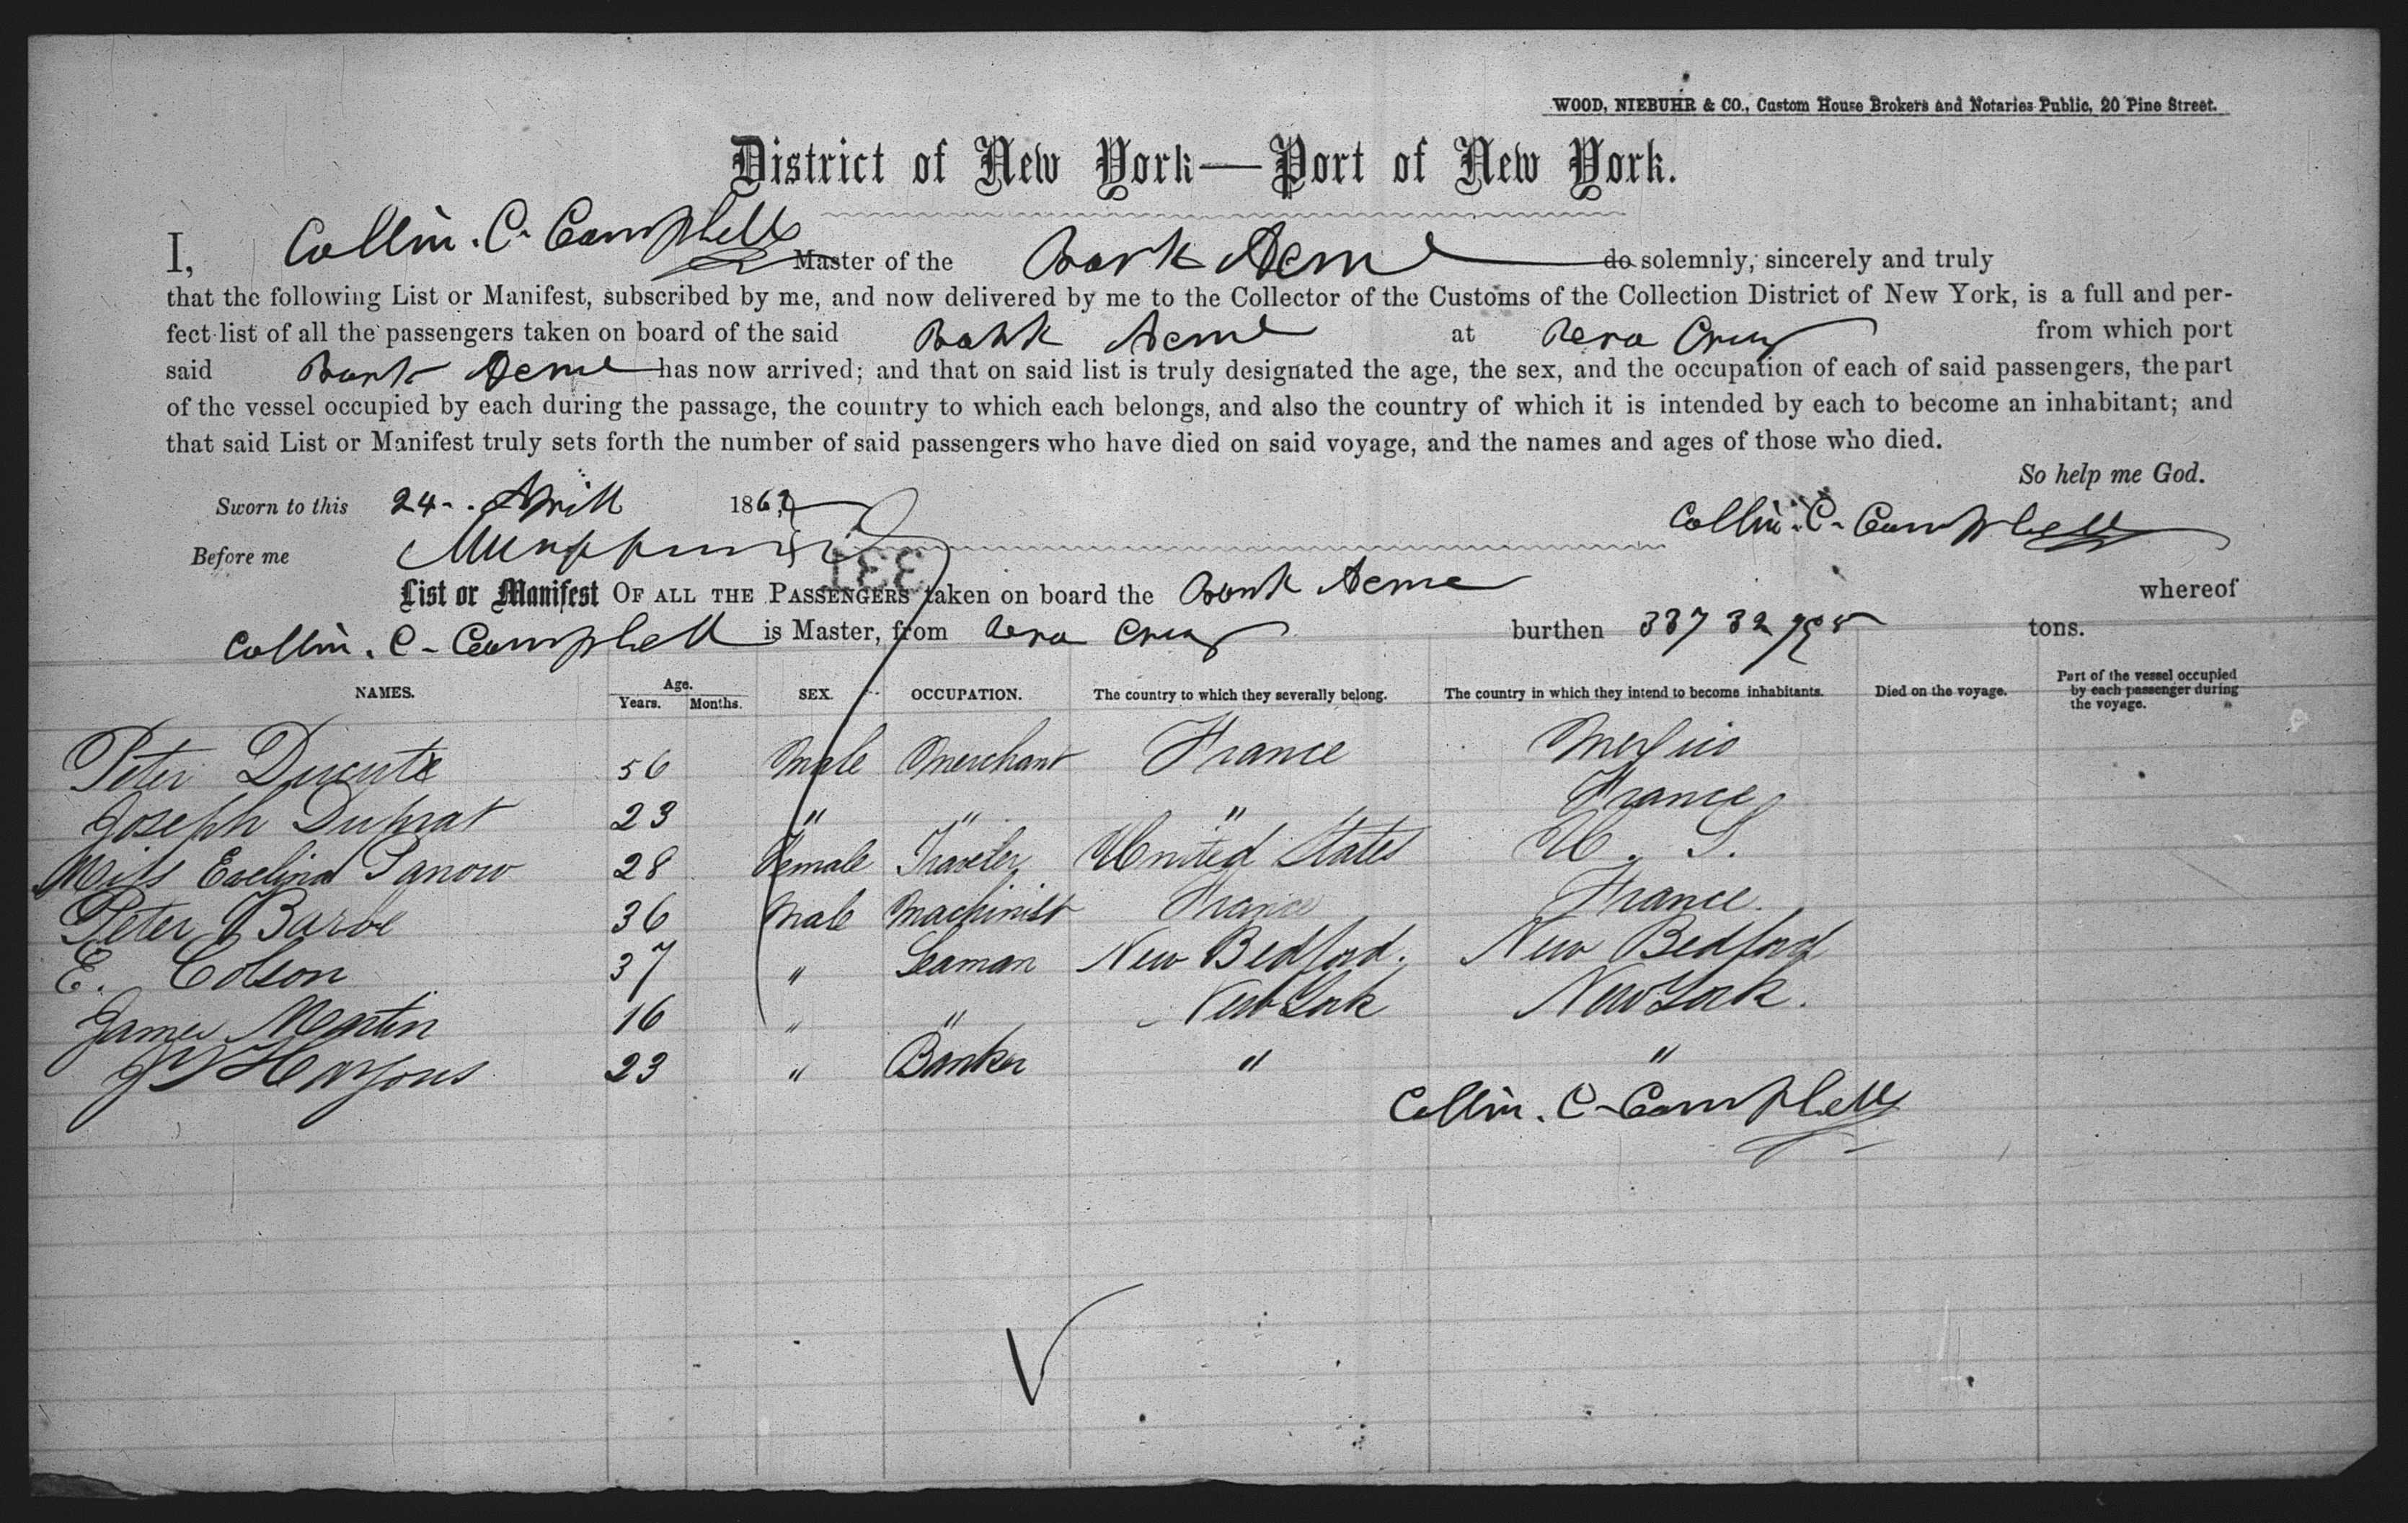 WOOD, NIEBUHR & CO., Custom House Brokers and Notaries Public, 20 Pine Street.
District of New York—Port of New York.
I, Collin. C. Campbell Master of the Bark Acme do solemnly, sincerely and truly
that the following List or Manifest, subscribed by me, and now delivered by me to the Collector of the Customs of the Collection District of New York, is a full and per-
fect list of all the passengers taken on board of the said Bark Acme at Vera Cruz from which port
said Bark Acme has now arrived; and that on said list is truly designated the age, the sex, and the occupation of each of said passengers, the part
of the vessel occupied by each during the passage, the country to which each belongs, and also the country of which it is intended by each to become an inhabitant; and
that said List or Manifest truly sets forth the number of said passengers who have died on said voyage, and the names and ages of those who died.
So help me God.
Sworn to this 24 Aprill 186 Collin. C. Campbell
Before me
331
List or Manifest OF ALL THE PASSENGERS taken on board the Bark Acme whereof
Collin. C. Campbell is Master, from Vera Cruz burthen 337 32 tons.
NAMES. Age. Years. Months. SEX. OCCUPATION. The country to which they severally belong. The country in which they intend to become inhabitants. Died on the voyage. Part of the vessel occupied by each passenger during the voyage.
Peter 56 Male Merchant France Mexico
Joseph Duprat 23 " " " France
Miss Evelina 28 Female Traveler United States U. S.
Peter Barbe 36 Male Machinist France France.
E. Colson 37 " Seaman New Bedford. New Bedford
James Martin 16 " " New York New York.
23 " Banker " "
Collin. C. Campbell